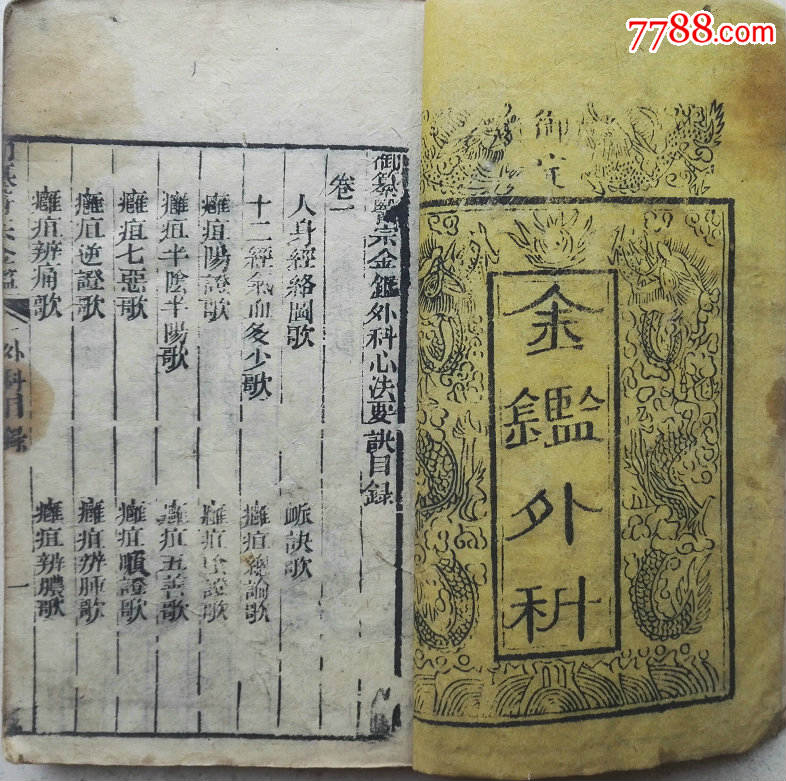 7788.com
御定
金鑑外科
御纂醫宗金鑑外科心法要訣目録
卷一
人身經絡圖歌
脈訣歌
十二經氣血多少歌
癰疽總論歌
癰疽陽證歌
癰疽陰證歌
癰疽半陰半陽歌
癰疽五善歌
癰疽七惡歌
癰疽順證歌
癰疽逆證歌
癰疽辨腫歌
癰疽辨痛歌
癰疽辨膿歌
金鑑
外科目録
一